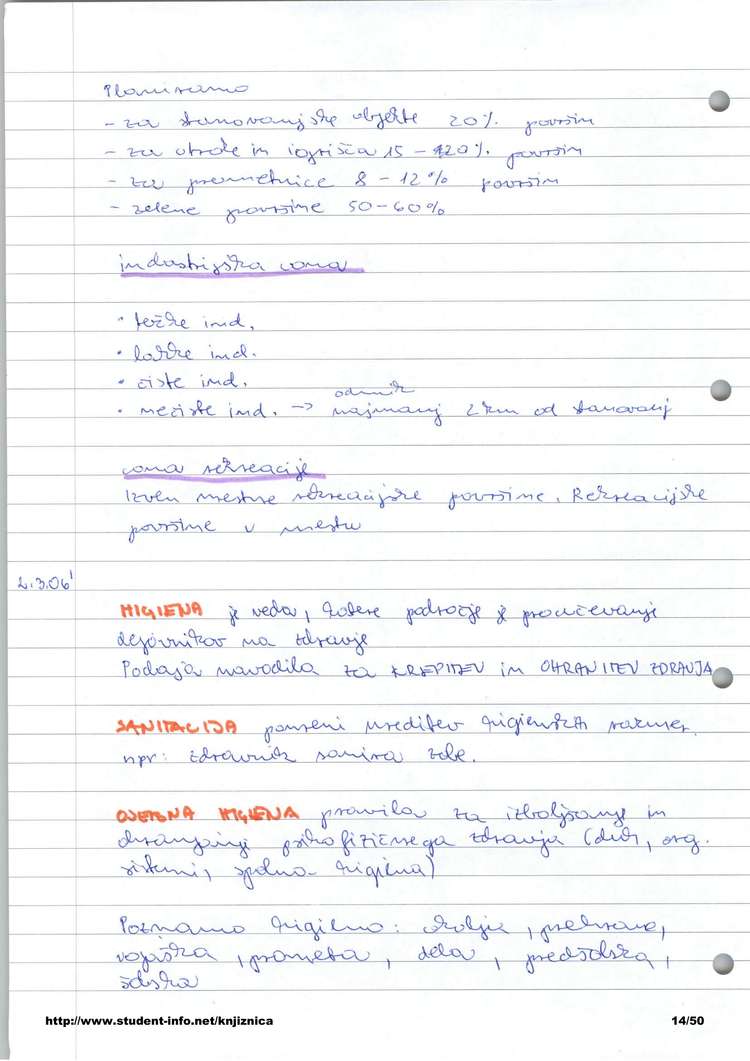 Planiramo
- za stanovanjske objekte 20% površin
- za otroke in igrišča 15 - 20% površin
- za prometnice 8 - 12% površin
- zelene površine 50-60%
industrijska cona
• težke ind.
• lahke ind.
• čiste ind.
odmik
• nečiste ind. -> najmanj 2 km od stanovanj
cona rekreacije
Izven mestne rekreacijske površine. Rekreacijske
površine v mestu
2.3.06'
HIGIENA je veda, katere področje je proučevanje
dejavnikov na zdravje
Podaja navodila za KREPITEV in OHRANITEV ZDRAVJA
SANITACIJA pomeni ureditev higienskih razmer.
npr: zdravnik sanira zobe.
OSEBNA HIGIENA pravila za izboljšanje in
ohranjanje psihofizičnega zdravja (duh, org.
sistemi, spolna higiena)
Poznamo higieno: okolja, prehrane,
vojaška, prometa, dela, predšolska,
šolska
http://www.student-info.net/knjiznica
14/50